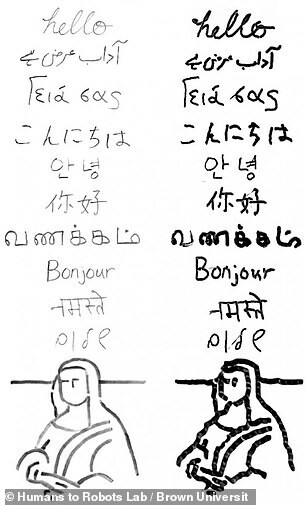 hello
آداب عرض ہے
Γειά σας
こんにちは
안녕
你好
வணக்கம்
Bonjour
नमस्ते
שלום
hello
آداب عرض ہے
Γειά σας
こんにちは
안녕
你好
வணக்கம்
Bonjour
नमस्ते
שלום
© Humans to Robots Lab / Brown Universit